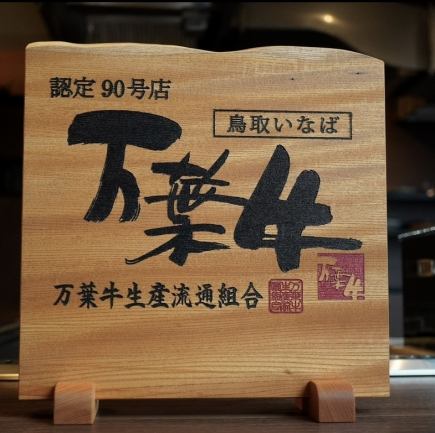 認定90号店
鳥取いなば
万葉牛
万葉牛生産流通組合
万葉牛